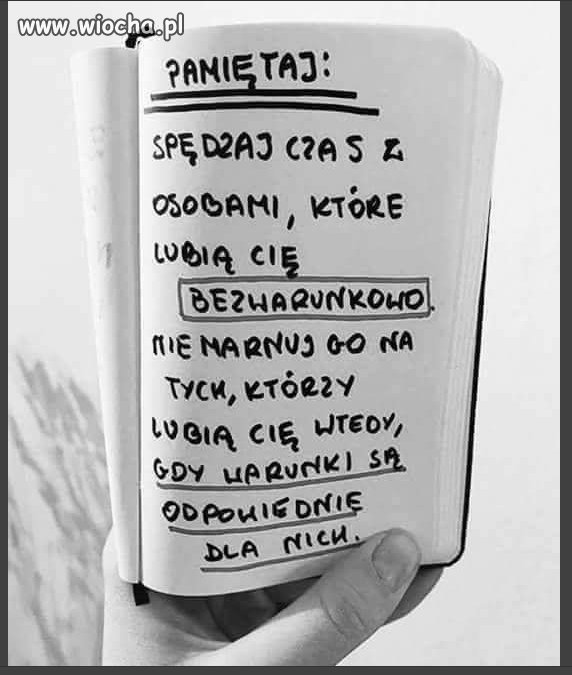 www.wiocha.pl
PAMIĘTAJ:
SPĘDZAJ CZAS Z
OSOBAMI, KTÓRE
LUBIĄ CIĘ
BEZWARUNKOWO.
NIE MARNUJ GO NA
TYCH, KTÓRZY
LUBIĄ CIĘ WTEDY,
GDY WARUNKI SĄ
ODPOWIEDNIE
DLA NICH.